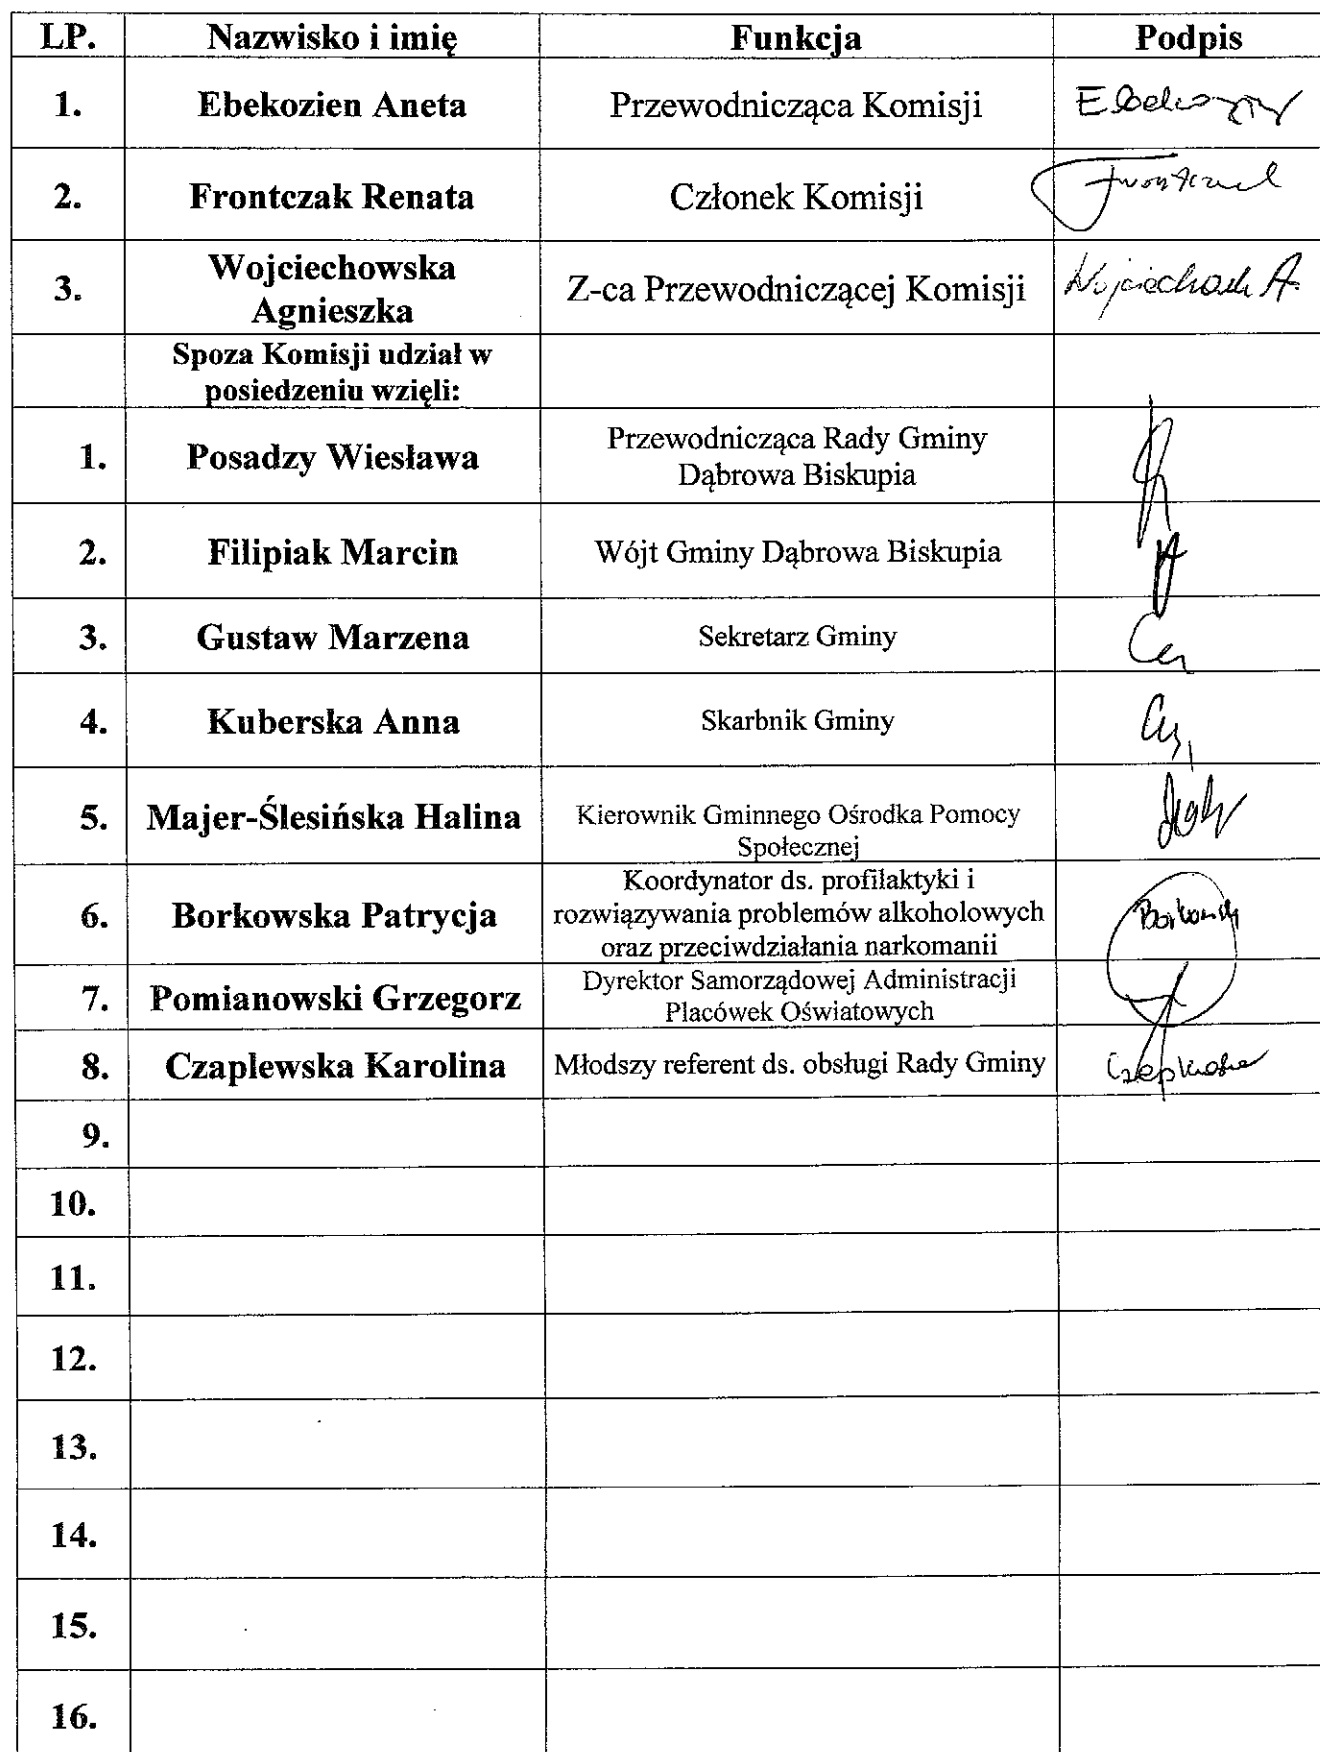 LP. Nazwisko i imię Funkcja Podpis
1. Ebekozien Aneta Przewodnicząca Komisji
2. Frontczak Renata Członek Komisji Frontczak
3. Wojciechowska Agnieszka Z-ca Przewodniczącej Komisji A.
Spoza Komisji udział w
posiedzeniu wzięli:
1. Posadzy Wiesława Przewodnicząca Rady Gminy
Dąbrowa Biskupia
2. Filipiak Marcin Wójt Gminy Dąbrowa Biskupia
3. Gustaw Marzena Sekretarz Gminy
4. Kuberska Anna Skarbnik Gminy
5. Majer-Ślesińska Halina Kierownik Gminnego Ośrodka Pomocy
Społecznej
6. Borkowska Patrycja Koordynator ds. profilaktyki i
rozwiązywania problemów alkoholowych
oraz przeciwdziałania narkomanii
7. Pomianowski Grzegorz Dyrektor Samorządowej Administracji
Placówek Oświatowych
8. Czaplewska Karolina Młodszy referent ds. obsługi Rady Gminy
9.
10.
11.
12.
13.
14.
15.
16.